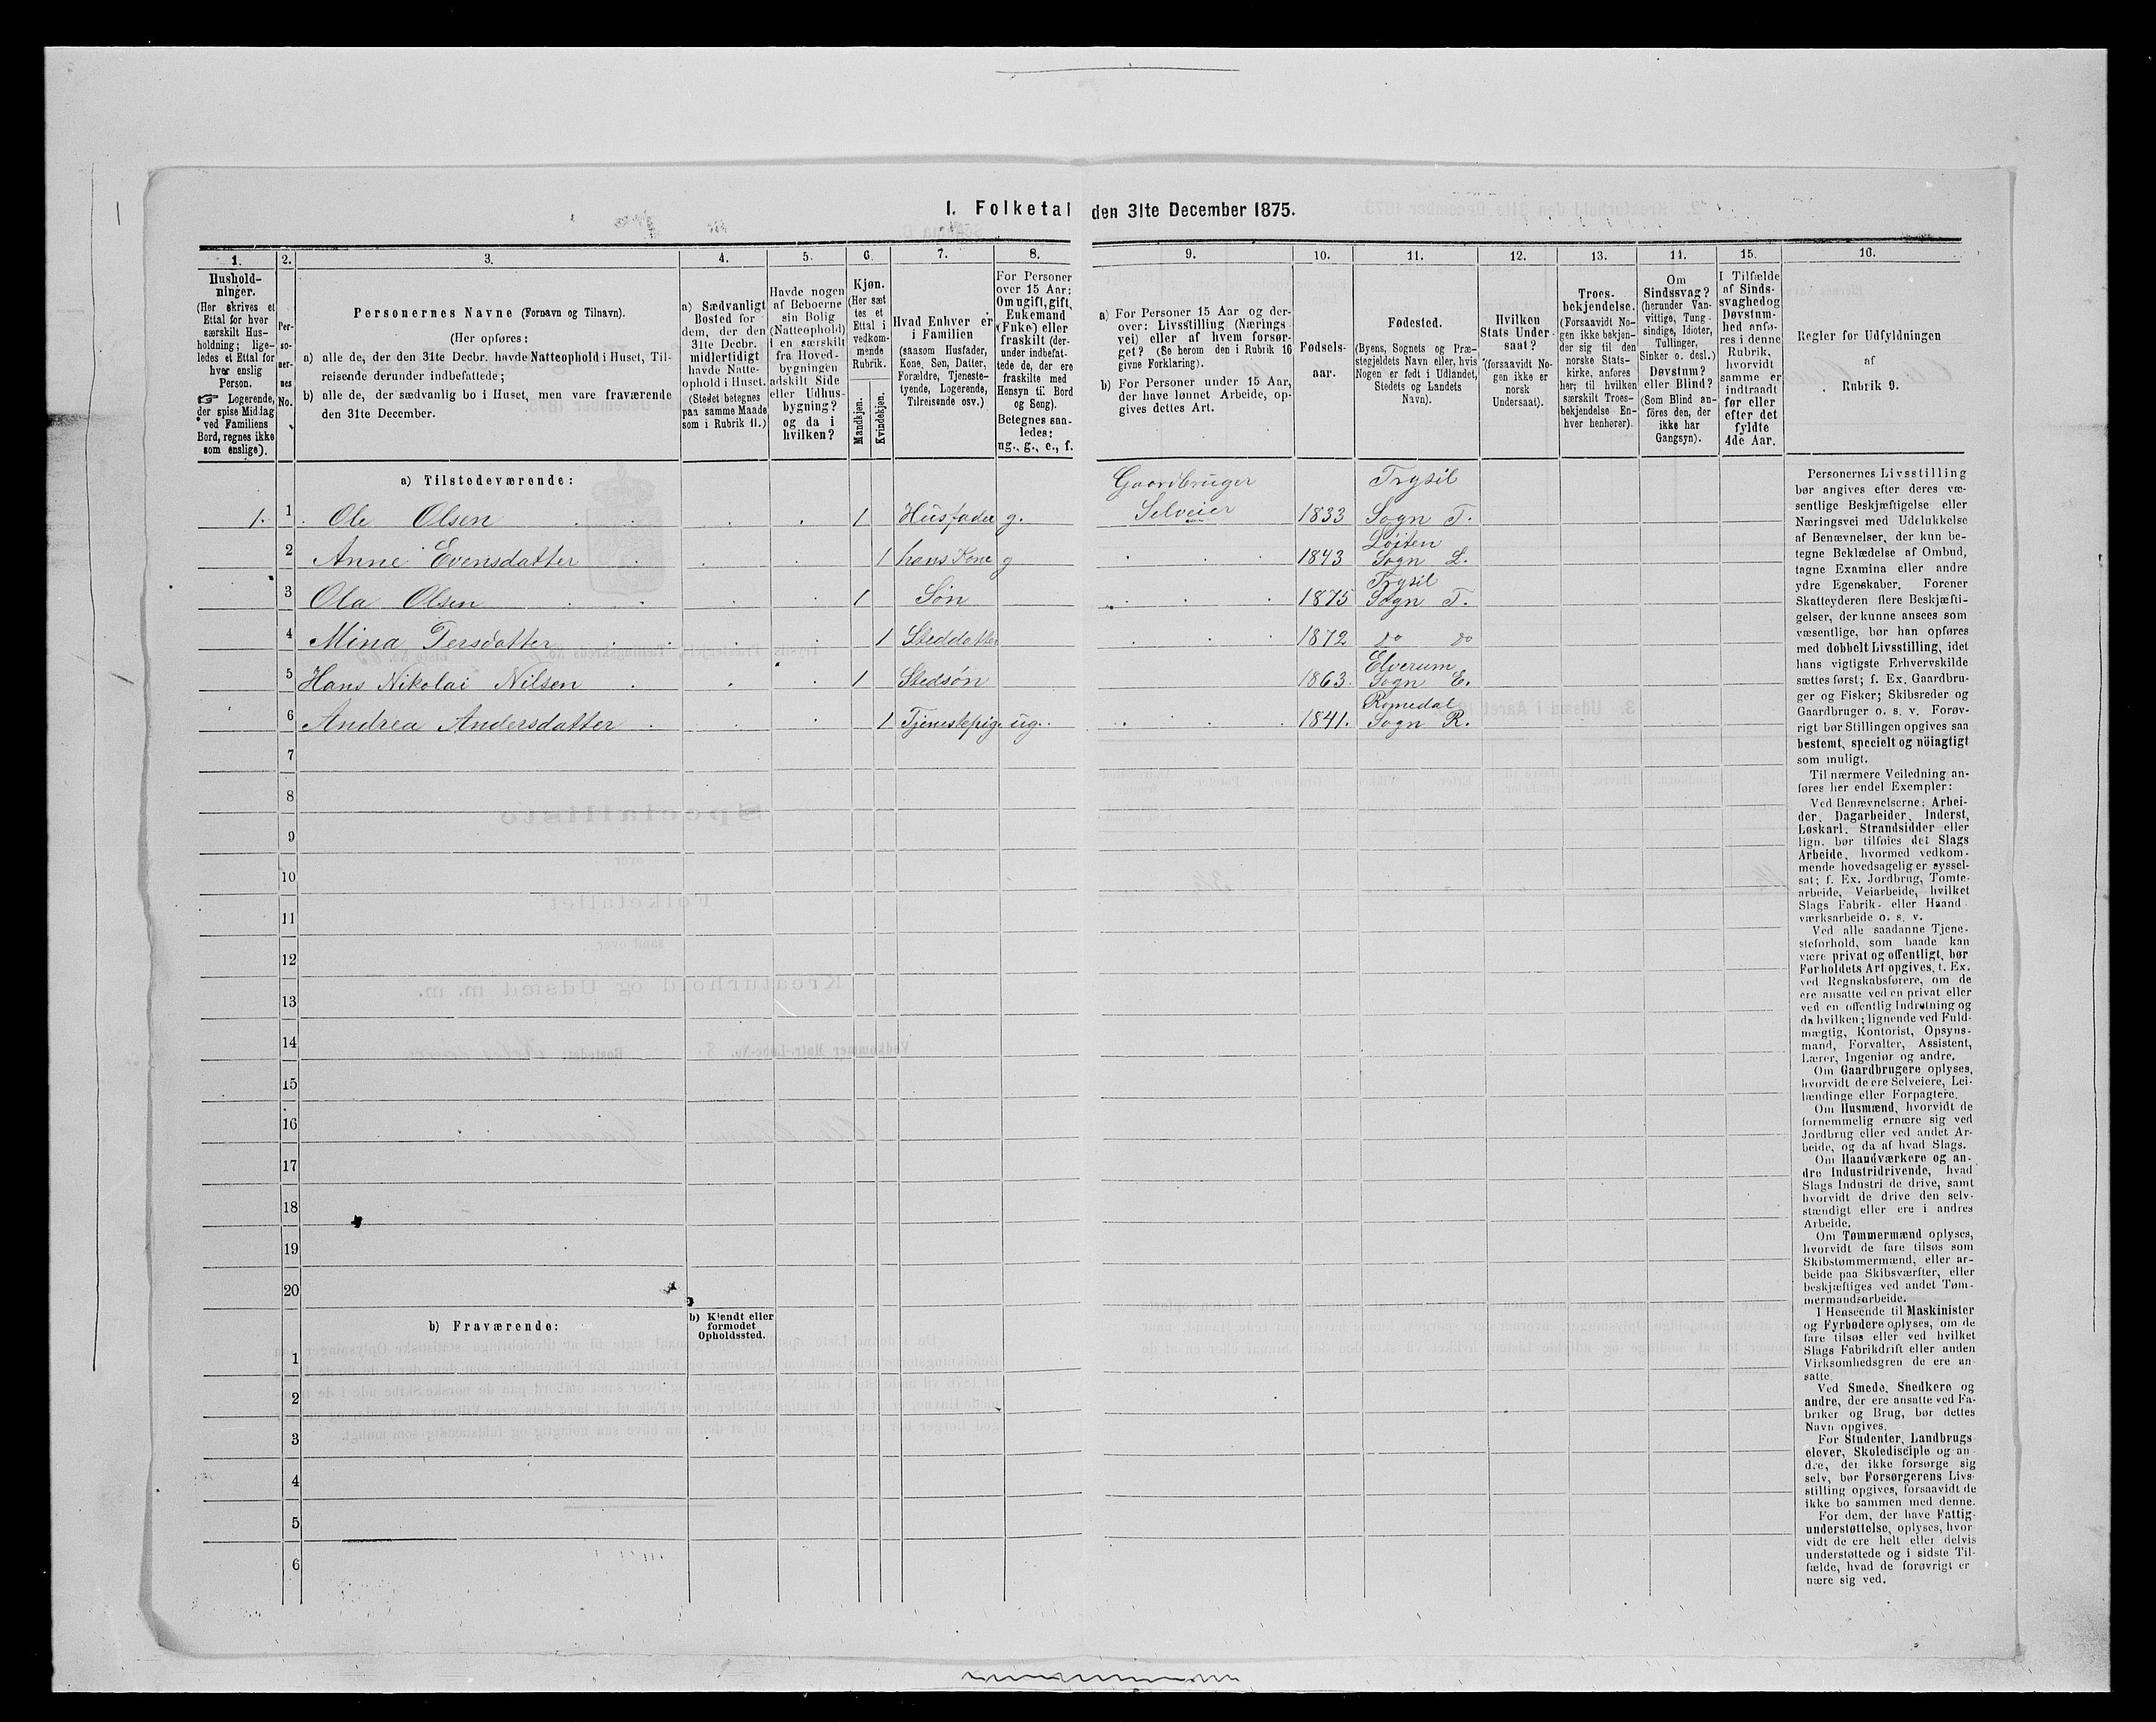 I. Folketal den 31te December 1875.
1. 2. 3. 4. 5. 6. 7. 8. 9. 10. 11. 12. 13. 14. 15. 16.
Hushold-
ninger.
(Her skrives et
Ettal for hver
særskilt Hus-
holdning; lige-
ledes et Ettal for
hver enslig
Person.
☞ Logerende,
der spise Middag
ved Familiens
Bord, regnes ikke
som enslige).
Per-
so-
ner-
nes
No.
Personernes Navne (Fornavn og Tilnavn).
(Her opføres:
a) alle de, der den 31te Decbr. havde Natteophold i Huset, Til-
reisende derunder indbefattede;
b) alle de, der sædvanlig bo i Huset, men vare fraværende
den 31te December.
a) Sædvanligt
Bosted for
dem, der den
31te Decbr.
midlertidigt
havde Natte-
ophold i Huset.
(Stedet betegnes
paa samme Maade
som i Rubrik 11.)
Havde nogen
af Beboerne
sin Bolig
(Natteophold)
i en særskilt
fra Hoved-
bygningen
adskilt Side
eller Udhus-
bygning?
og da i
hvilken?
Kjøn.
(Her sæt
tes et
Ettal i
vedkom-
mende
Rubrik.
Mandkjøn.
Kvindekjøn.
Hvad Enhver er
i Familien
(saasom Husfader,
Kone, Søn, Datter,
Forældre, Tjeneste-
tyende, Logerende,
Tilreisende osv.)
For Personer
over 15 Aar:
Om ugift, gift,
Enkemand
(Enke) eller
fraskilt (der-
under indbefat-
tede de, der ere
fraskilte med
Hensyn til Bord
og Seng).
Betegnes saa-
ledes:
ug., g., e., f.
a) For Personer 15 Aar og der-
over: Livsstilling (Nærings
vei) eller af hvem forsør-
get? (Se herom den i Rubrik 16
givne Forklaring).
b) For Personer under 15 Aar,
der have lønnet Arbeide, op-
gives dettes Art.
Fødsels-
aar.
Fødested.
(Byens, Sognets og Præ-
stegjeldets Navn eller, hvis
Nogen er født i Udlandet,
Stedets og Landets
Navn).
Hvilken
Stats Under-
saat?
(forsaavidt No-
gen ikke er
norsk
Undersaat).
Troes-
bekjendelse.
(Forsaavidt No-
gen ikke bekjen-
der sig til den
norske Stats-
kirke, anføres
her; til hvilken
særskilt Troes-
bekjendelse En-
hver henhører).
Om
Sindssvag?
(herunder Van-
vittige, Tung-
sindige, Idioter,
Tullinger,
Sinker o. desl.)
Døvstum?
eller Blind?
(Som Blind an-
föres den, der
ikke har
Gangsyn).
I Tilfælde
af Sinds-
svaghed og
Døvstum-
hed anfø-
res i denne
Rubrik,
hvorvidt
samme er
indtraadt
før eller
efter det
fyldte
4de Aar.
Regler for Udfyldningen
af
Rubrik 9.
a) Tilstedeværende:
Gaardbruger Trysil
1. 1 Ole Olsen 1 Husfader g. Selveier 1833 Sogn T.
Löiten
2 Anne Evensdatter 1 hans Kone g 1843 Sogn L.
Trysil
3 Ola Olsen 1 Søn 1875 Sogn T.
4 Mina Persdatter 1 Steddatter 1872 do do
Elverum
5 Hans Nikolai Nilsen 1 Stedsøn 1863. Sogn E.
Romedal
6 Andrea Andersdatter 1 Tjenestepig. ug. 1841. Sogn R.
7
8
9
10
11
12
13
14
15
16
17
18
19
20
b) Fraværende: b) Kjendt eller
formodet
Opholdssted.
1
2
3
4
5
6
Personernes Livsstilling
bør angives efter deres væ-
sentlige Beskjæftigelse eller
Næringsvei med Udelukkelse
af Benævnelser, der kun be-
tegne Beklædelse af Ombud,
tagne Examina eller andre
ydre Egenskaber. Forener
Skatteyderen flere Beskjæfti-
gelser, der kunne ansees som
væsentlige, bør han opføres
med dobbelt Livsstilling, idet
hans vigtigste Erhvervskilde
sættes først; f. Ex. Gaardbru-
ger og Fisker; Skibsreder og
Gaardbruger o. s. v. Forøv-
rigt bør Stillingen opgives saa
bestemt, specielt og nöiagtigt
som muligt.
Til nærmere Veiledning an-
føres her endel Exempler:
Ved Benævnelserne: Arbei-
der, Dagarbeider, Inderst,
Løskarl, Strandsidder eller
lign. bør tilføies det Slags
Arbeide, hvormed vedkom-
mende hovedsagelig er syssel-
sat; f. Ex. Jordbrug, Tomte-
arbeide, Veiarbeide, hvilket
Slags Fabrik- eller Haand-
værksarbeide o. s. v.
Ved alle saadanne Tjene-
steforhold, som baade kan
være privat og offentligt, bør
Forholdets Art opgives, f. Ex.
ved Regnskabsførere, om de
ere ansatte ved en privat eller
ved en offentlig Indretning og
da hvilken; lignende ved Fuld-
mægtig, Kontorist, Opsyns-
mand, Forvalter, Assistent,
Lærer, Ingeniør og andre.
Om Gaardbrugere oplyses,
hvorvidt de ere Selveiere, Lei-
lændinge eller Forpagtere.
Om Husmænd, hvorvidt de
fornemmelig ernære sig ved
Jordbrug eller ved andet Ar-
beide, og da af hvad Slags.
Om Haandværkere og an-
dre Industridrivende, hvad
Slags Industri de drive, samt
hvorvidt de drive den selv-
stændigt eller ere i andres
Arbeide.
Om Tømmermænd oplyses,
hvorvidt de fare tilsøs som
Skibstømmermænd, eller ar-
beide paa Skibsværfter, eller
beskjæftiges ved andet Tøm-
mermandsarbeide.
I Henseende til Maskinister
og Fyrbødere oplyses, om de
fare tilsøs eller ved hvilket
Slags Fabrikdrift eller anden
Virksomhedsgren de ere an-
satte.
Ved Smede, Snedkere og
andre, der ere ansatte ved Fa-
briker og Brug, bør dettes
Navn opgives.
For Studenter, Landbrugs-
elever, Skoledisciple og an-
dre, der ikke forsørge sig
selv, bør Forsørgerens Livs-
stilling opgives, forsaavidt de
ikke bo sammen med denne.
For dem, der have Fattig-
understøttelse, oplyses, hvor-
vidt de ere helt eller delvis
understøttede og i sidste Til-
fælde, hvad de forøvrigt er-
nære sig ved.